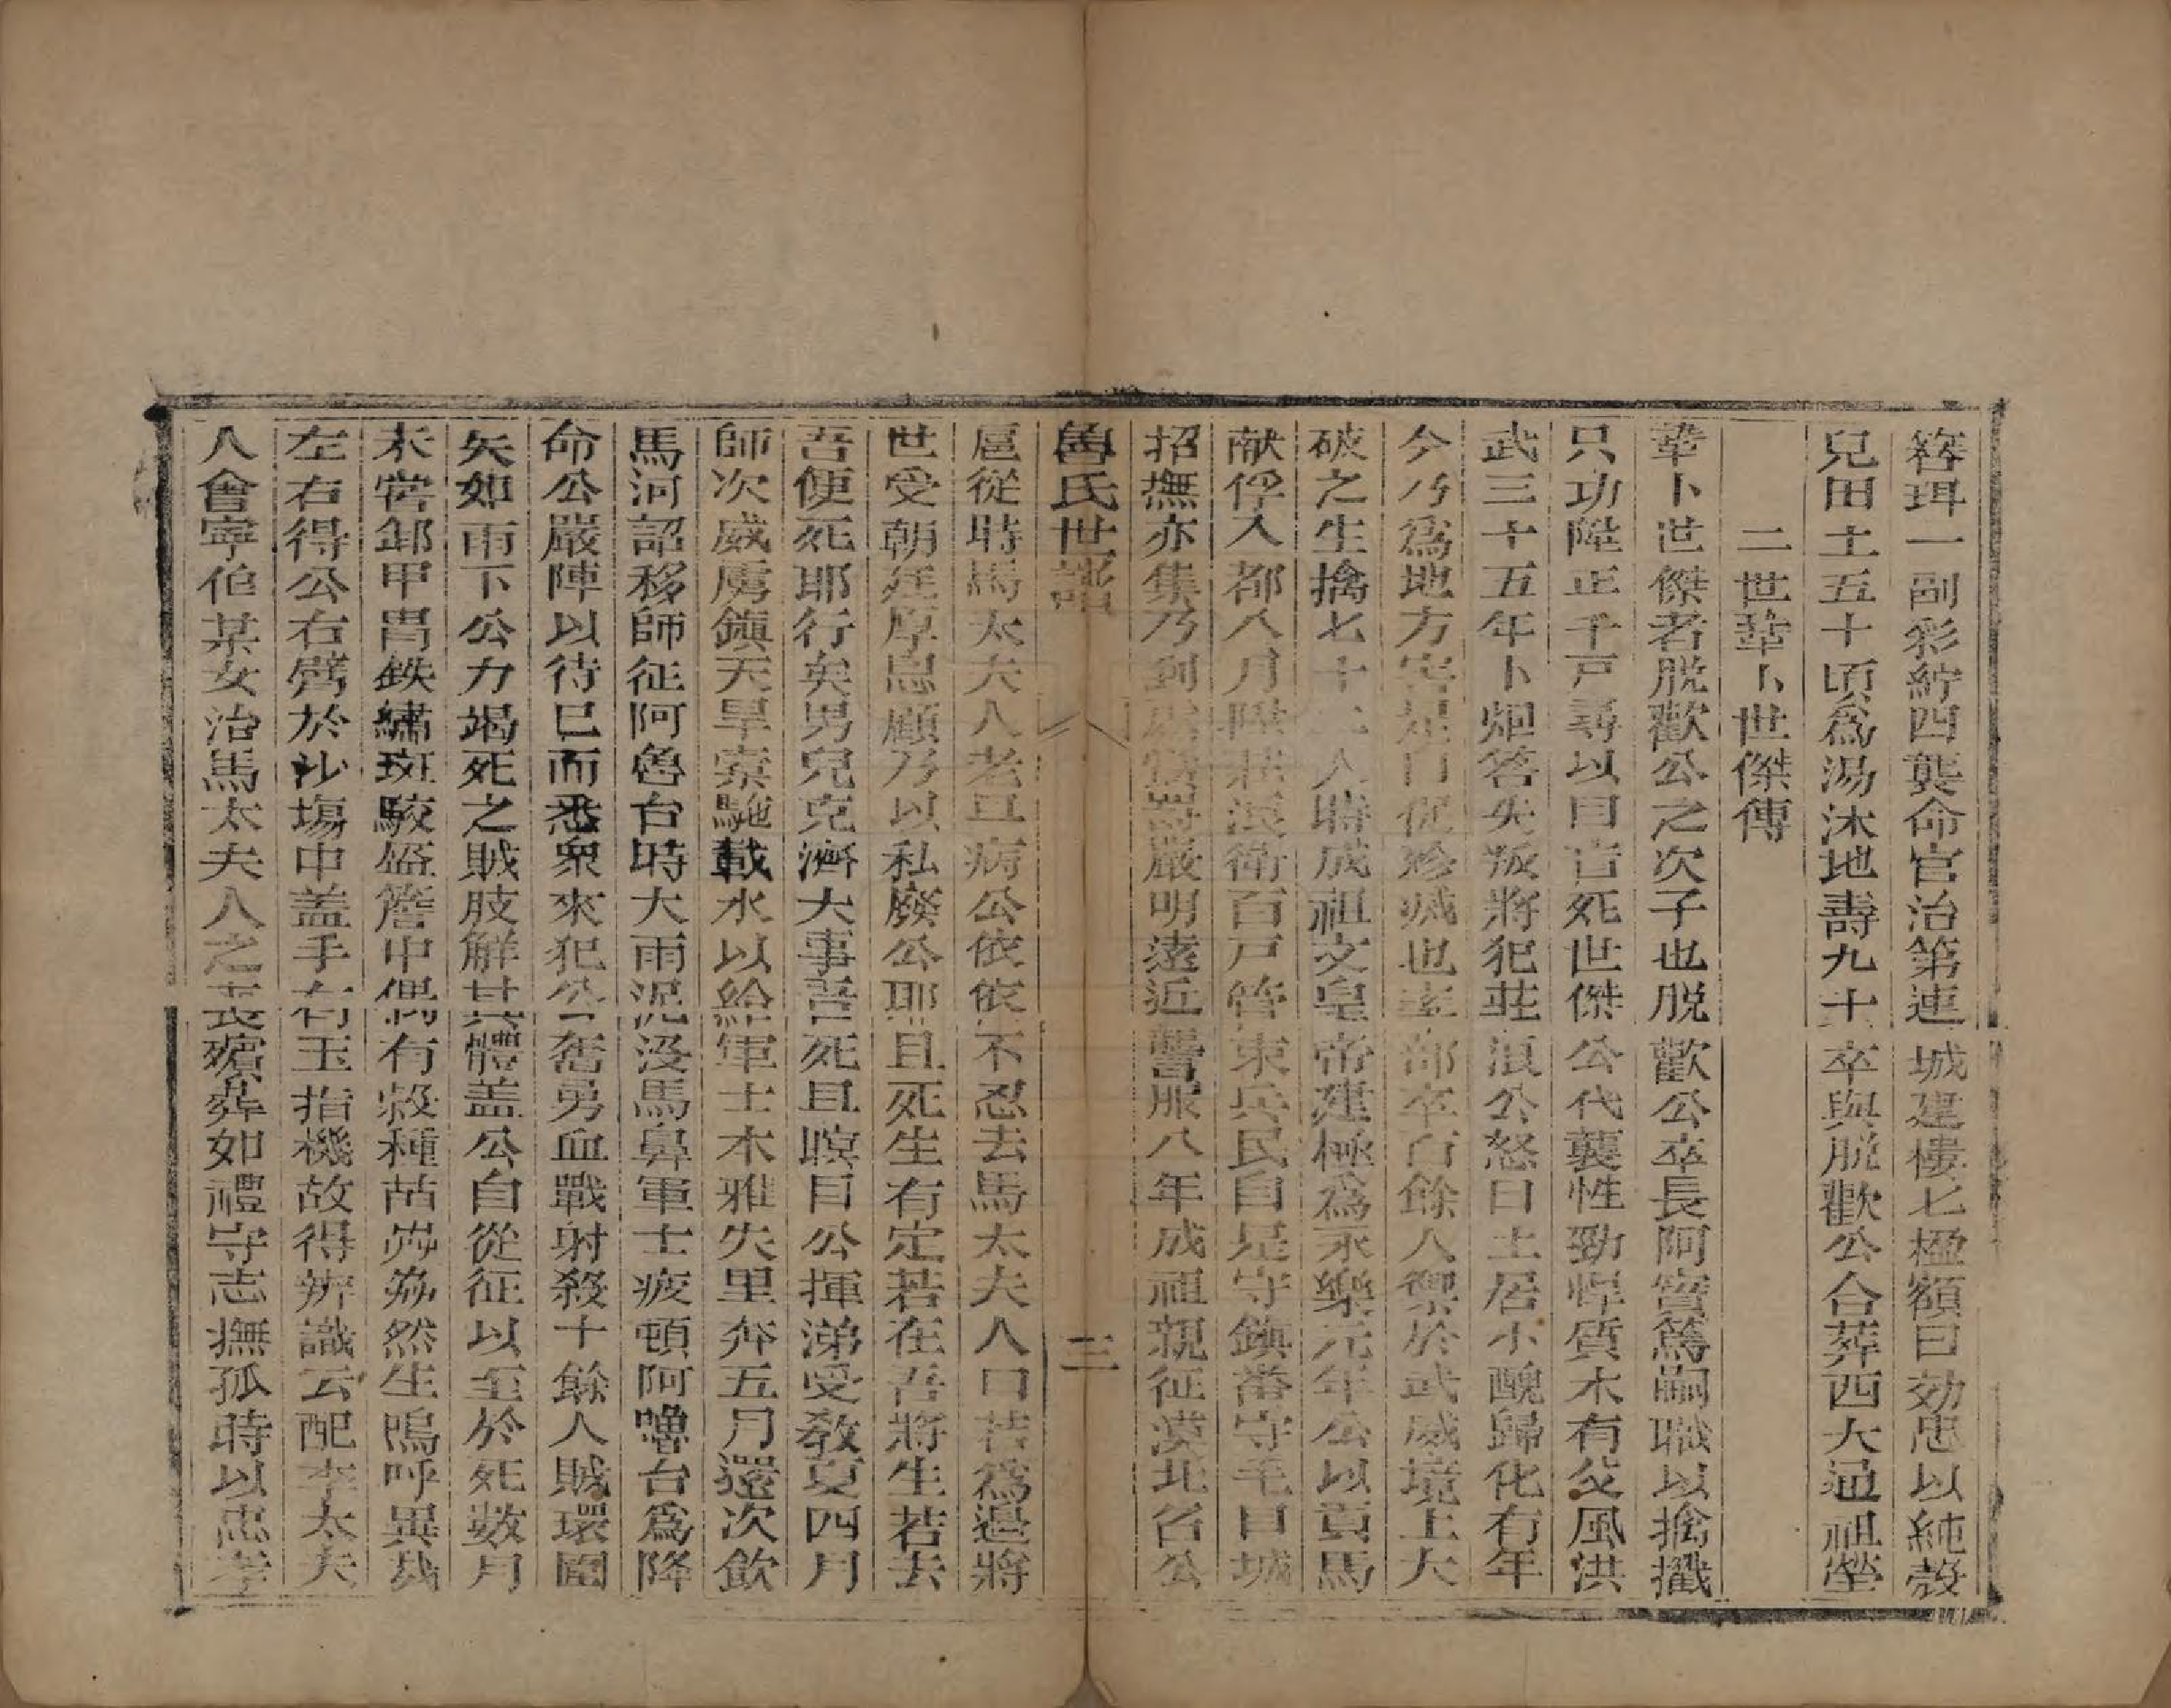 簪珥一副彩紵四襲命官治第連城建樓七楹額曰効忠以純嘏
兒田土五十頃爲湯沐地壽九十卒與脱歡公合葬西大通祖塋
二世鞏卜世傑傳
鞏卜世傑者脱歡公之次子也脱歡公卒長阿實篤嗣職以擒戩
只功陞正千戸尋以目眚死世傑公代襲性勁悍質木有父風洪
武三十五年卜烟答失叛將犯莊浪公怒曰土居小醜歸化有年
今乃爲地方害是自促殄滅也率部卒百餘人禦於武威境上大
破之生擒七十二人時成祖文皇帝建極爲永樂元年公以貢馬
献俘入都八月陞莊浪衛百戸管束兵民自是守鎮番守毛目城
招撫亦集乃剿賞罰嚴明遠近讋服八年成祖親征漠北召公
魯氏世譜
三
扈從時馬太夫人老且病公依依不忍去馬太夫人曰若爲邉將
世受朝廷厚恩顧乃以私廢公耶且死生有定若在吾將生若去
吾便死耶行矣男兒克濟大事吾死且瞑目公揮涕受敎夏四月
師次威虜鎮天旱索駞載水以給軍士木雅失里奔五月還次飲
馬河詔移師征阿魯台時大雨泥沒馬鼻軍士疲頓阿嚕台爲降
命公嚴陣以待巳而悉衆來犯公奮勇血戰射殺十餘人賊環圍
矢如雨下公力竭死之賊肢解其體盖公自從征以至於死數月
未嘗卸甲胄鉄繡斑駮盔簷中偶有穀種苗茁勃然生嗚呼異哉
左右得公右臂於沙塲中盖手有玉指機故得辨識云配李太夫
人會寧伯某女治馬太夫人之喪殯葬如禮守志撫孤時以忠孝